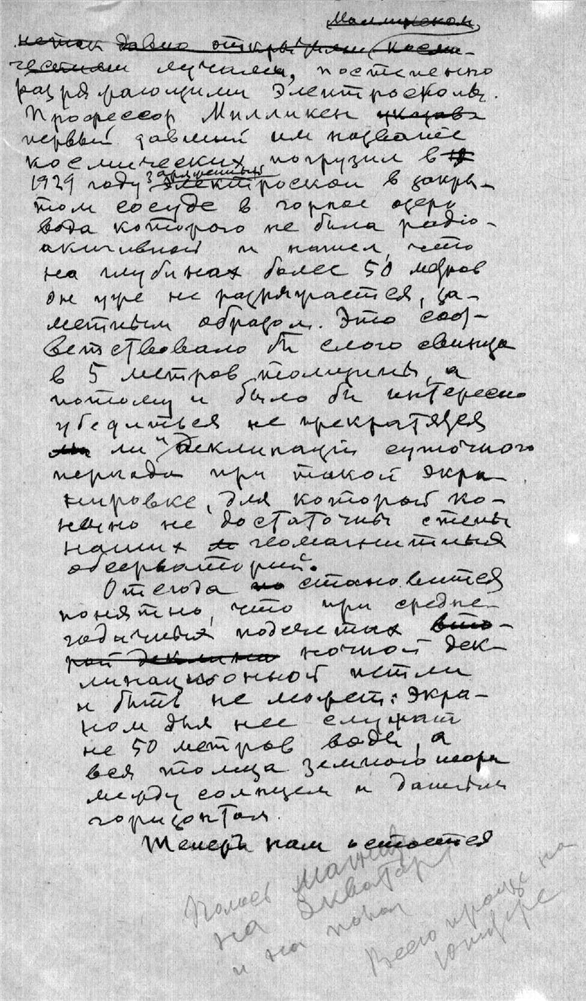 Милликеном
не так давно открытыми косми-
ческими лучами, постепенно
разряжающими электроскопы.
Профессор Милликен указав
первый давший им название
космических погрузил в
1929 году заряженный электроскоп в закры-
том сосуде в горное озеро
вода которого не была радио-
активной и нашел, что
на глубинах более 50 метров
он уже не разряжается, за-
метным образом. Это соот-
ветствовало бы слою свинца
в 5 метров толщины, а
потому и было бы интересно
убедиться не прекратятся
ли деклинации суточного
периода при такой экра-
нировке, для которой ко-
нечно не достаточны стены
наших геомагнитных
обсерваторий.
Отсюда становится
понятно, что при средне-
годичных подсчетах вто-
рой деклина ночной дек-
линационной петли
и быть не может: экра-
ном для нее служат
не 50 метров воды, а
вся толща земного шара
между солнцем и данным
горизонтом.
Теперь нам остается
Полюс
на экваторе
и на полюс
Всего проще на